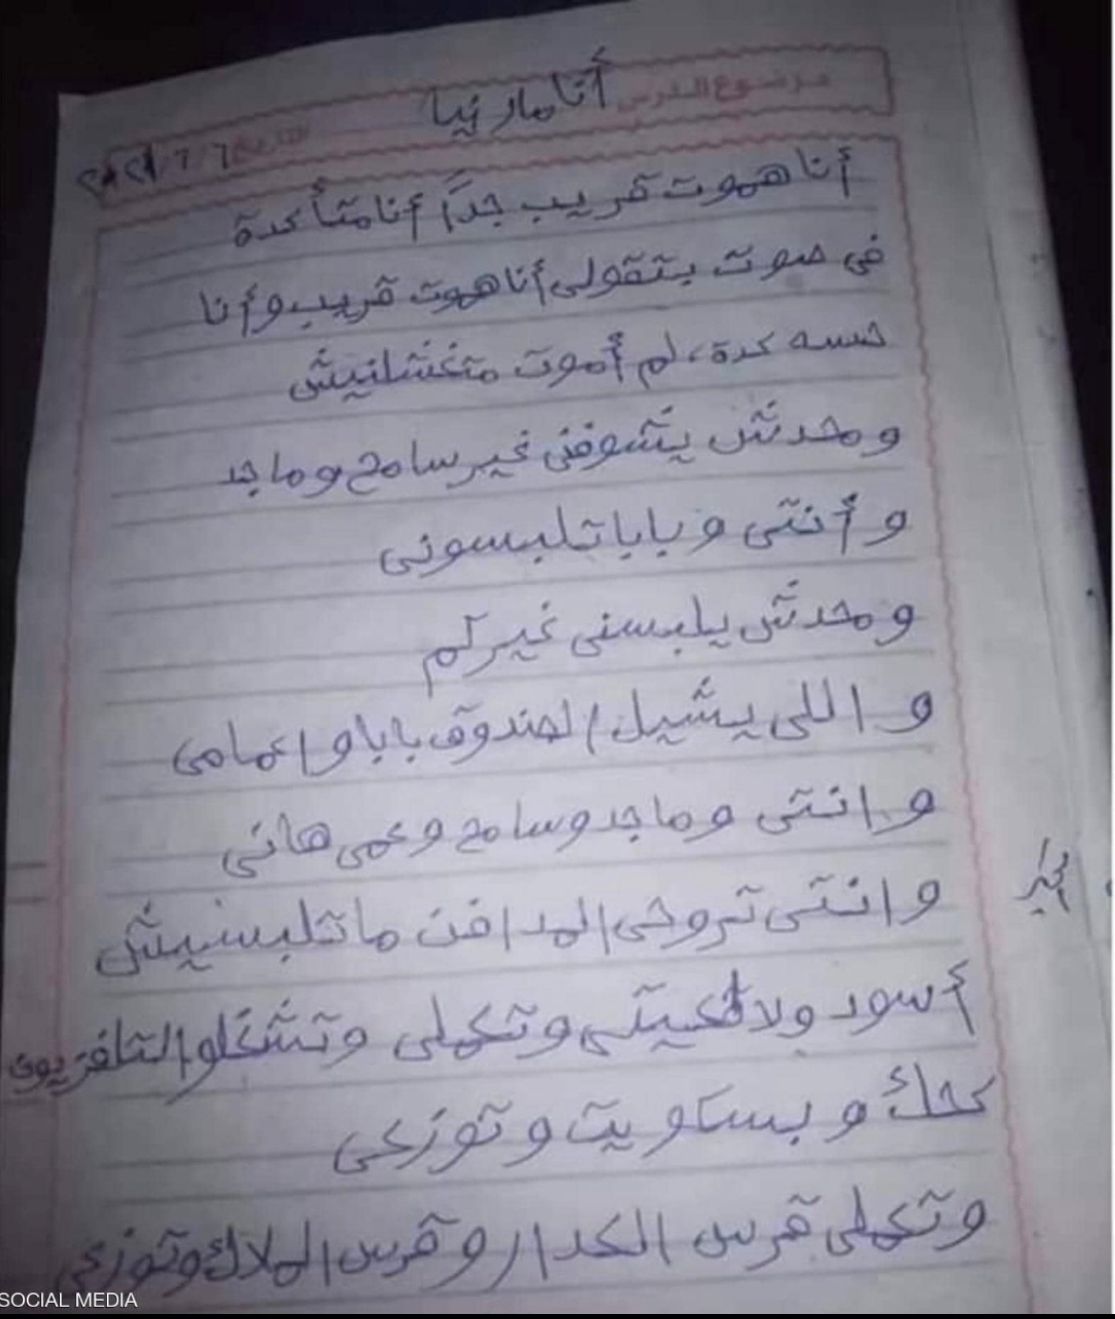 موضوع الدرس
أنا مارنيا
التاريخ ٦ / ٦ / ٢٠٢١
أنا هموت قريب جداً أنا متأكدة
فى صوت بتقولى أنا هموت قريب وأنا
حسه كدة، لم أموت متغسلنيش
ومحدش يشوفنى غير سامح وماجد
و أنتى وبابا تلبسونى
ومحدش يلبسنى غيركم
و اللى يشيل الصندوق بابا واعمامى
و انتى وماجد وسامح وعمى هانى
و انتى تروحى المدافن ماتلبسيش
أسود ولا وتعملى وتشغلو التلفزيون
كحك و بسكويت وتوزعى
وتعملى قرس الكدار وقرس الملاك وتوزعى
SOCIAL MEDIA